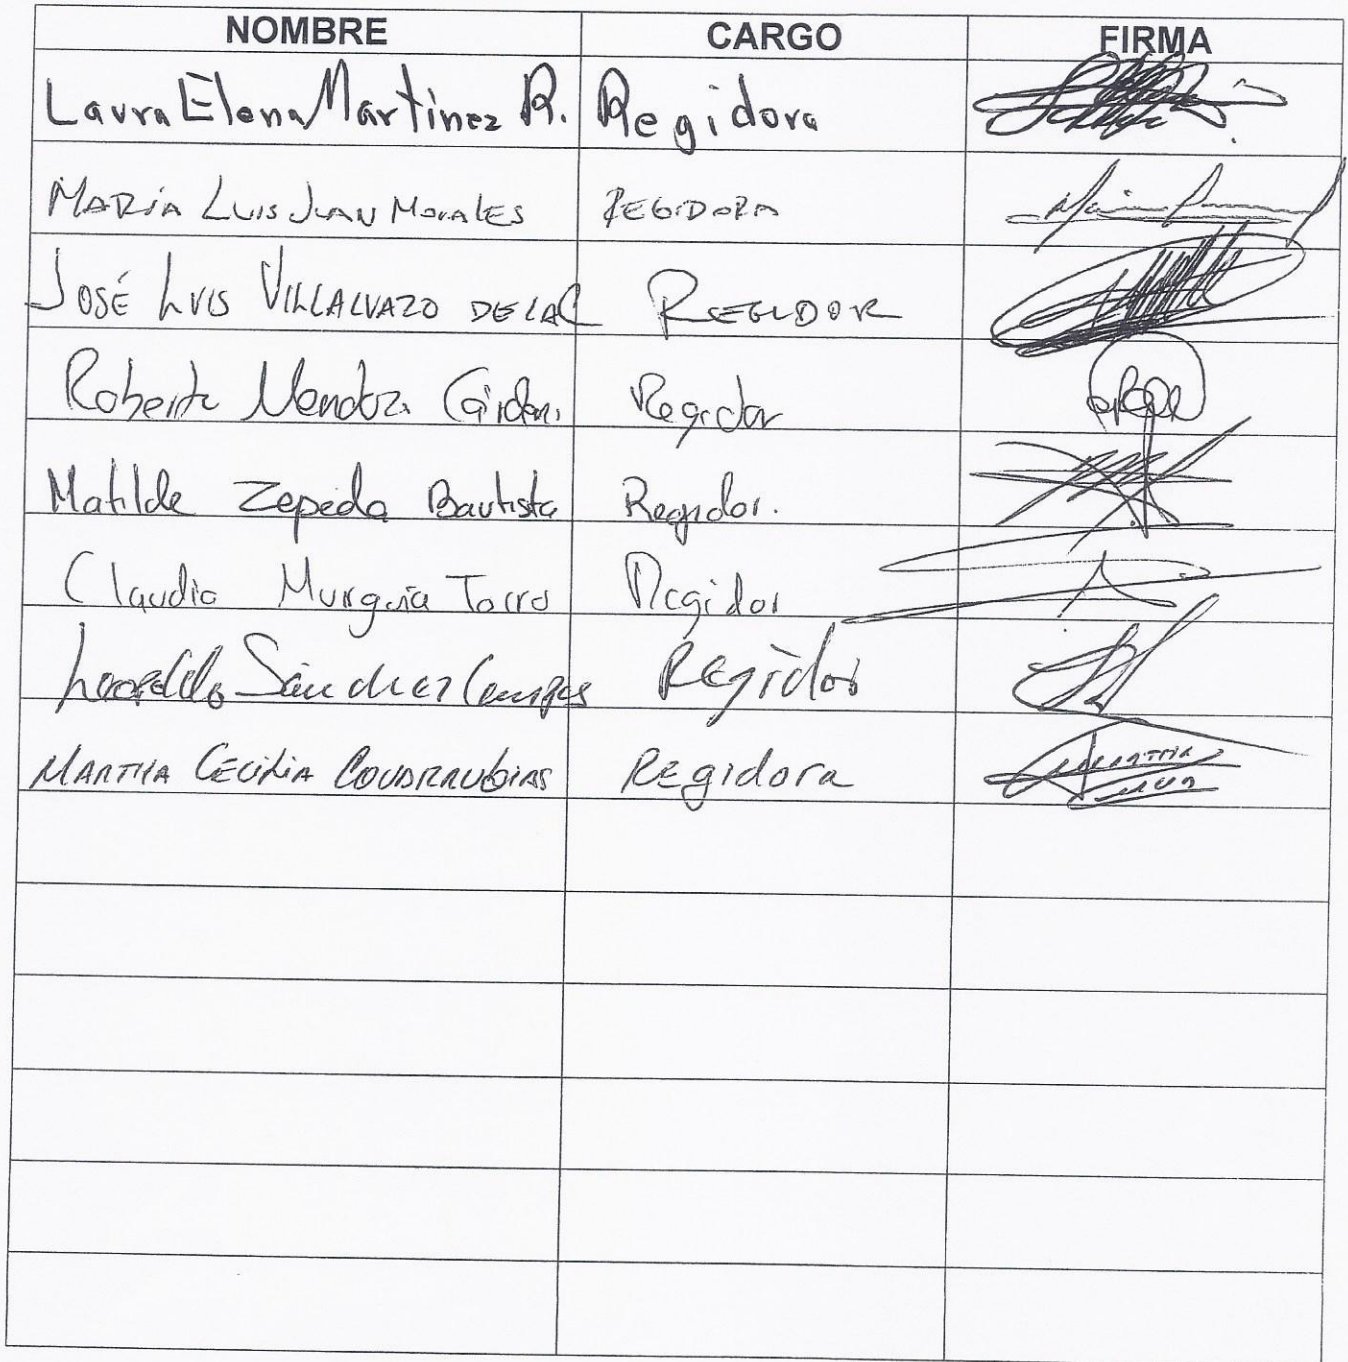 NOMBRE CARGO FIRMA
Laura Elena Martínez R. Regidora
MARÍA LUIS JUAN MORALES REGIDORA
JOSÉ LUIS VILLALVAZO DE LA C REGIDOR
Roberto Mendoza Regidor
Matilde Zepeda Bautista Regidor.
Claudia Murguía Torres Regidor
Leopoldo Sánchez Campos Regidor
MARTHA CECILIA COVARRUBIAS Regidora